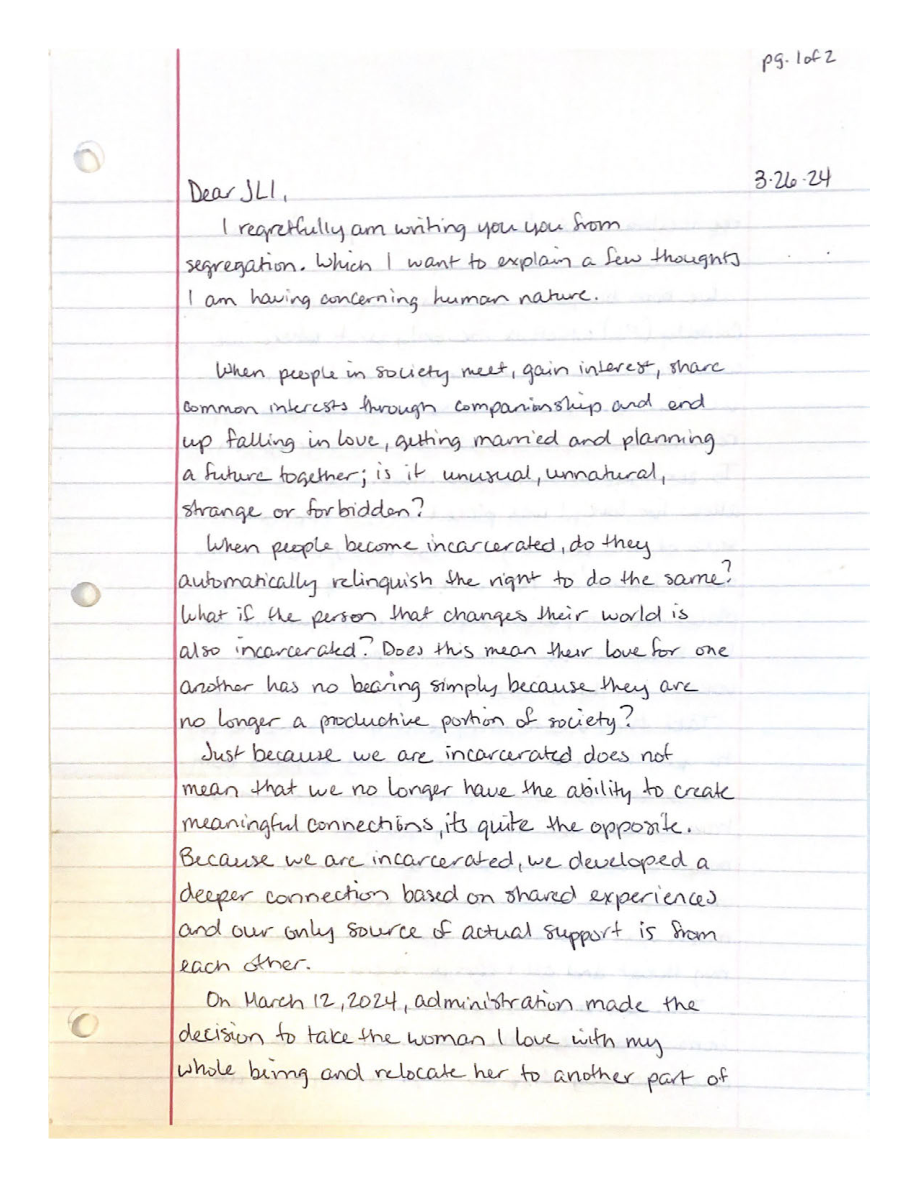 pg. 1 of 2
3-26-24
Dear JLI,
I regretfully am writing you you from
segregation. Which I want to explain a few thoughts
I am having concerning human nature.
When people in society meet, gain interest, share
common interests through companionship and end
up falling in love, getting married and planning
a future together; is it unusual, unnatural,
strange or forbidden?
When people become incarcerated, do they
automatically relinquish the right to do the same?
What if the person that changes their world is
also incarcerated? Does this mean their love for one
another has no bearing simply because they are
no longer a productive portion of society?
Just because we are incarcerated does not
mean that we no longer have the ability to create
meaningful connections, its quite the opposite.
Because we are incarcerated, we developed a
deeper connection based on shared experiences
and our only source of actual support is from
each other.
On March 12, 2024, administration made the
decision to take the woman I love with my
whole being and relocate her to another part of